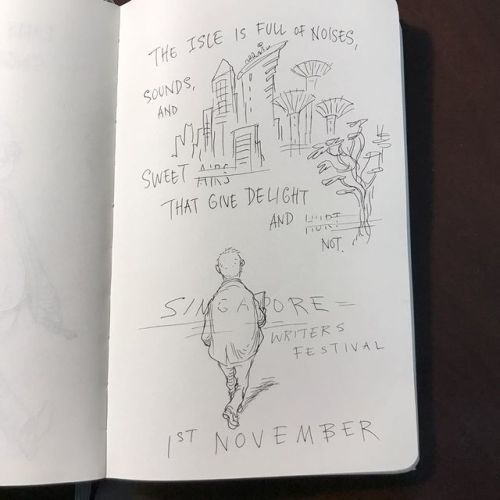 THE ISLE IS FULL OF NOISES,
SOUNDS,
AND
SWEET AIRS
THAT GIVE DELIGHT
AND HURT
NOT.
SINGAPORE
WRITERS
FESTIVAL
1ST NOVEMBER